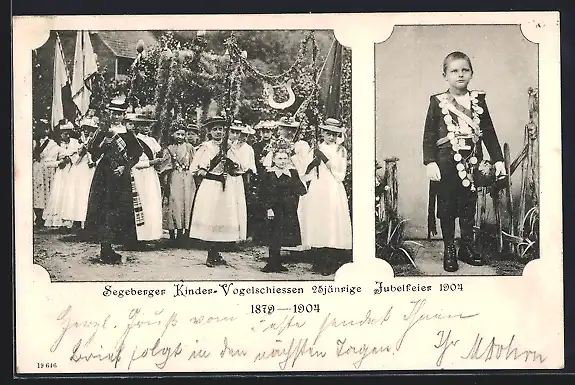 Segeberger Kinder-Vogelschiessen 25jährige Jubelfeier 1904
1879—1904
Herzl. Gruß vom Feste sendet Ihnen
Brief folgt in den nächsten Tagen. Ihr
19646